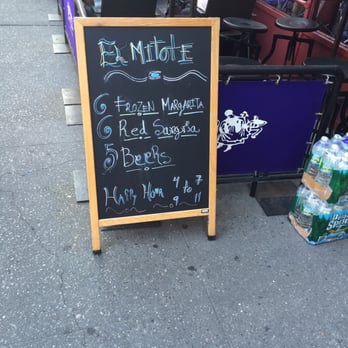 El Mitote
6 Frozen Margarita
6 Red Sangria
5 Beers
Happy Hour 4 to 7
9 11
Poland
Spring